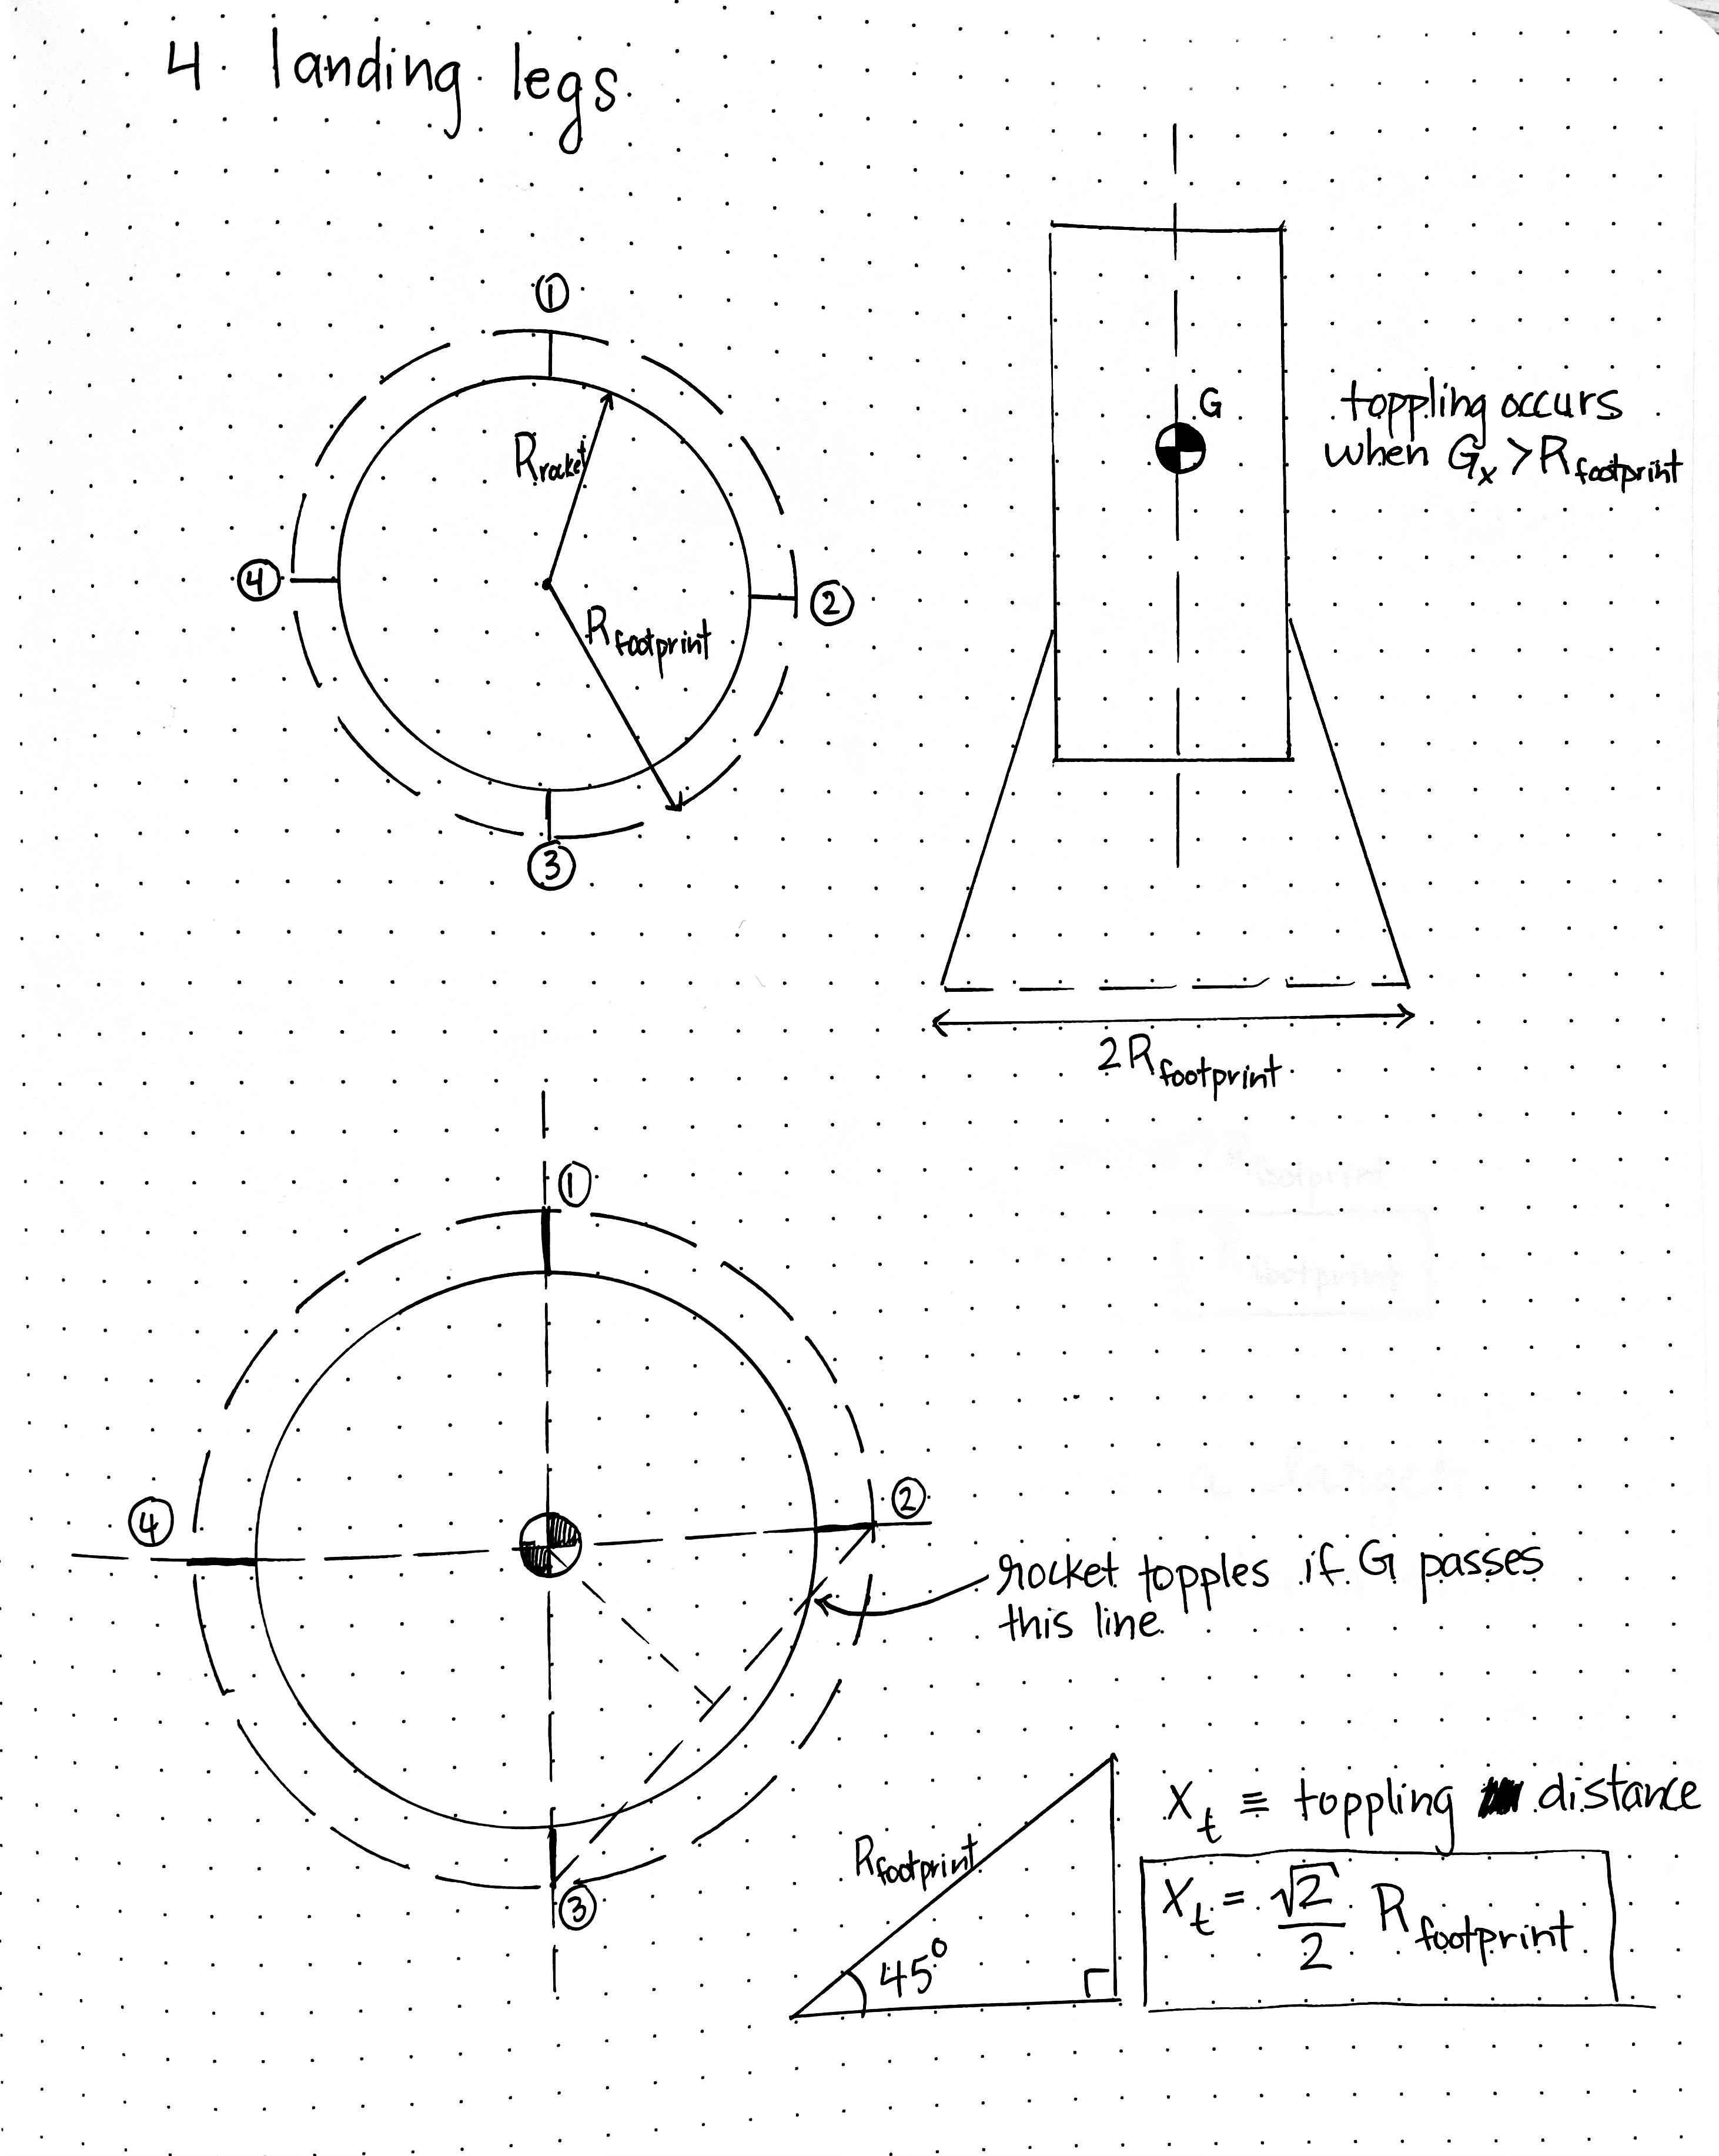 4 landing legs
①
R rocket
④
②
R footprint
③
G
toppling occurs
when Gₓ > R footprint
2R footprint
①
④
②
rocket topples if G passes
this line
③
R footprint
45°
Xₜ ≡ toppling distance
Xₜ = √2/2 R footprint